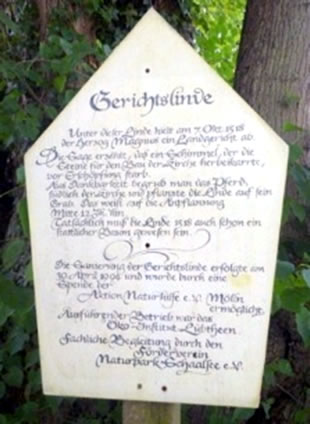 Gerichtslinde
Unter dieser Linde hielt am 7. Okt. 1518
der Herzog Magnus ein Landgericht ab.
Die Sage erzählt, daß ein Schimmel, der die
Steine für den Bau der Kirche herbeikarrte,
vor Erschöpfung starb.
Aus Dankbarkeit begrub man das Pferd
südlich der Kirche und pflanzte die Linde auf sein
Grab. Das weist auf die Anpflanzung
Mitte 12. Jh. hin.
Tatsächlich muß die Linde 1518 auch schon ein
stattlicher Baum gewesen sein.
Die Sanierung der Gerichtslinde erfolgte am
30. April 1994 und wurde durch eine
Spende der
Aktion Naturhilfe e.V. Mölln
ermöglicht.
Ausführender Betrieb war das
Öko-Institut Lübtheen
Fachliche Begleitung durch den
Förderverein
Naturpark Schaalsee e.V.